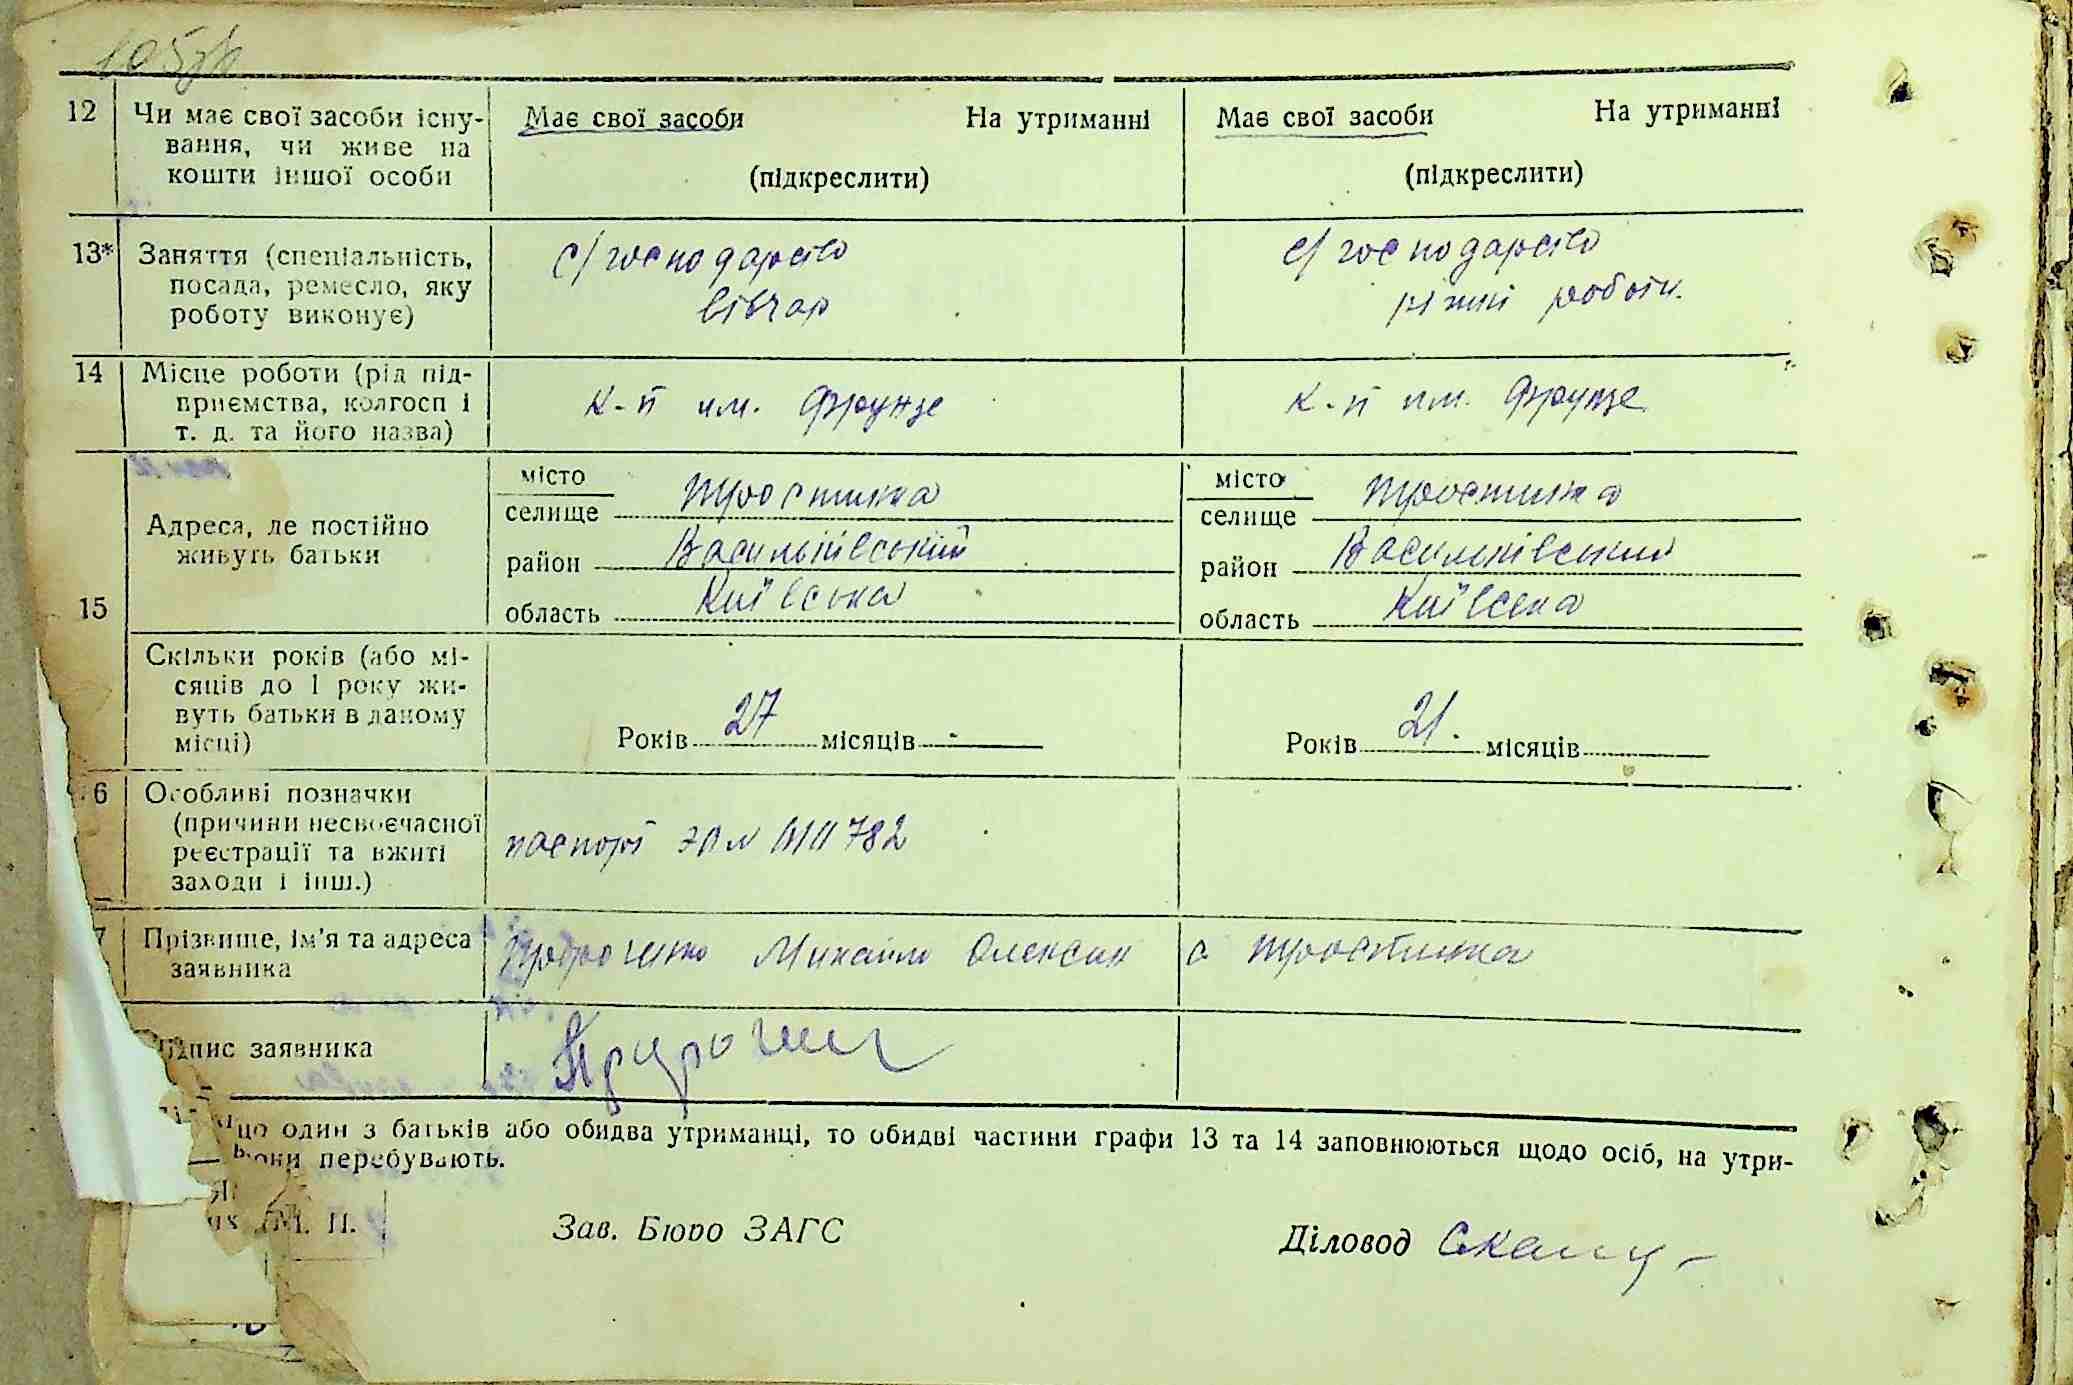 12 Чи має свої засоби існу-
вання, чи живе на
кошти іншої особи
Має свої засоби На утриманні
(підкреслити)
Має свої засоби На утриманні
(підкреслити)
13* Заняття (спеціальність,
посада, ремесло, яку
роботу виконує)
с/господарство
вівчар
с/господарство
різні роботи.
14 Місце роботи (рід під-
приємства, колгосп і
т. д. та його назва)
к-п им. Фрунзе
к-п им. Фрунзе
15 Адреса, де постійно
живуть батьки
місто
селище Тростинка
район Васильківський
область Київська
місто
селище Тростинка
район Васильківський
область Київська
Скільки років (або мі-
сяців до 1 року жи-
вуть батьки в даному
місці)
Років 27 місяців -
Років 21. місяців
6 Особливі позначки
(причини несвоєчасної
реєстрації та вжиті
заходи і інш.)
паспорт 782
7 Прізвище, ім'я та адреса
заявника
Михайло Олексин с Тростинка
підпис заявника
один з батьків або обидва утриманці, то обидві частини графи 13 та 14 заповнюються щодо осіб, на утри-
вони перебувають.
М. П.
Зав. Бюро ЗАГС
Діловод